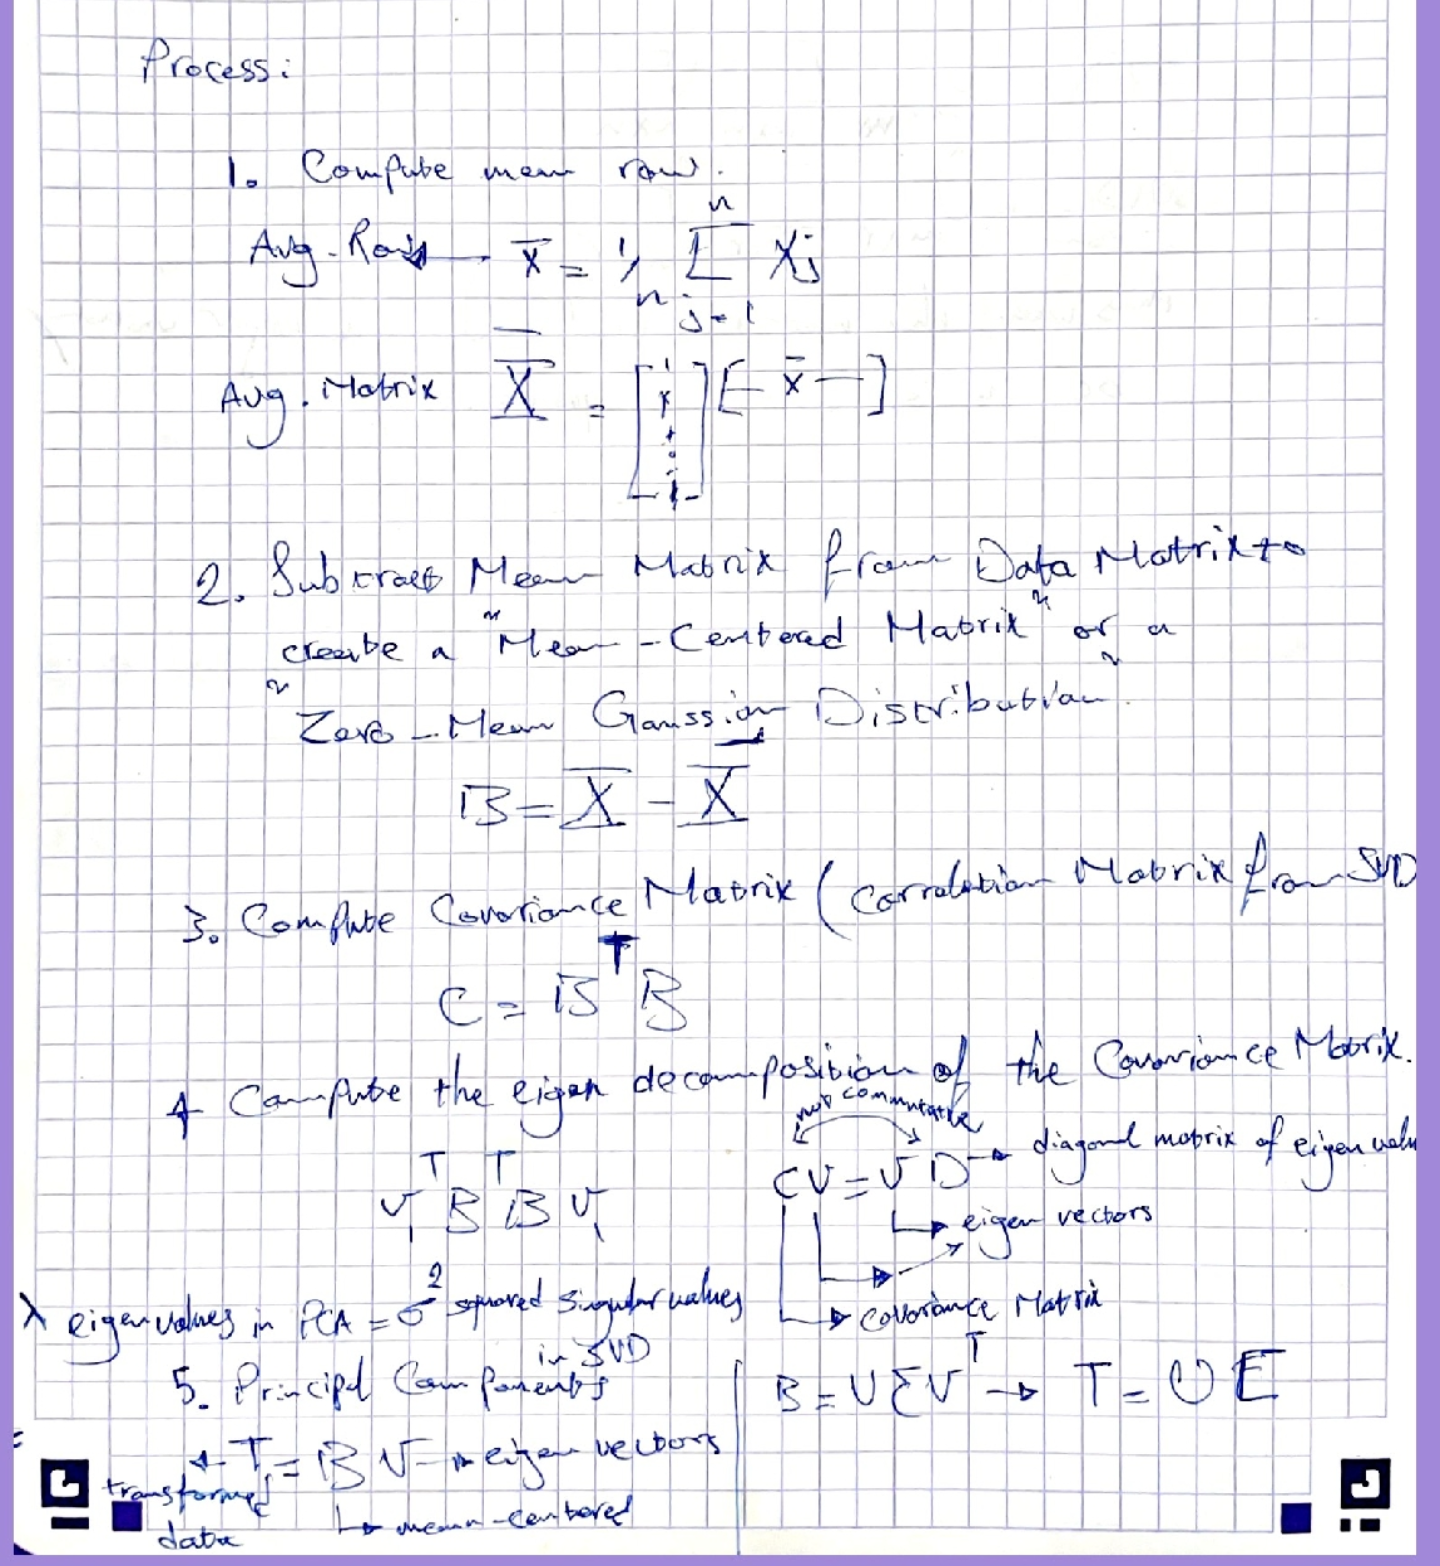 Process:
1. Compute mean row.
Avg. Row → x̄ = 1/n Σ_{j=1}^{n} Xj
Avg. Matrix X̄ = [1 ⋮ 1] [— x̄ —]
2. Subtract Mean Matrix from Data Matrix to
create a "Mean-Centered Matrix" or a
"Zero-Mean Gaussian Distribution".
B = X - X̄
3. Compute Covariance Matrix (Correlation Matrix from SVD
C = B^T B
4 Compute the eigen decomposition of the Covariance Matrix.
not commutative
v₁^T B^T B v₁
CV = VD → diagonal matrix of eigen valu
eigen vectors
Covariance Matrix
λ eigenvalues in PCA = σ² squared singular values
in SVD
5. Principal Components
B = UΣV^T → T = UΣ
← T = BV → eigen vectors
transformed
data
mean-centered